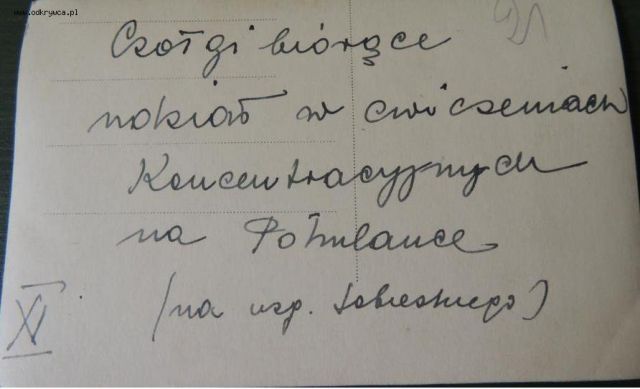 www.odkrywca.pl
Czołgi biórące
udział w cwiczeniach
Koncentracyjnych
na Pohulance
(na wzg. Sobieskiego)